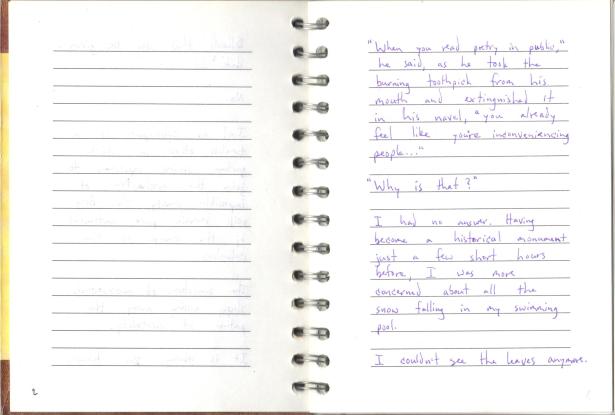 "When you read poetry in public,"
he said, as he took the
burning toothpick from his
mouth and extinguished it
in his navel, "you already
feel like you're inconveniencing
people..."
"Why is that?"
I had no answer. Having
become a historical monument
just a few short hours
before, I was more
concerned about all the
snow falling in my swimming
pool.
I couldn't see the leaves anymore.
2